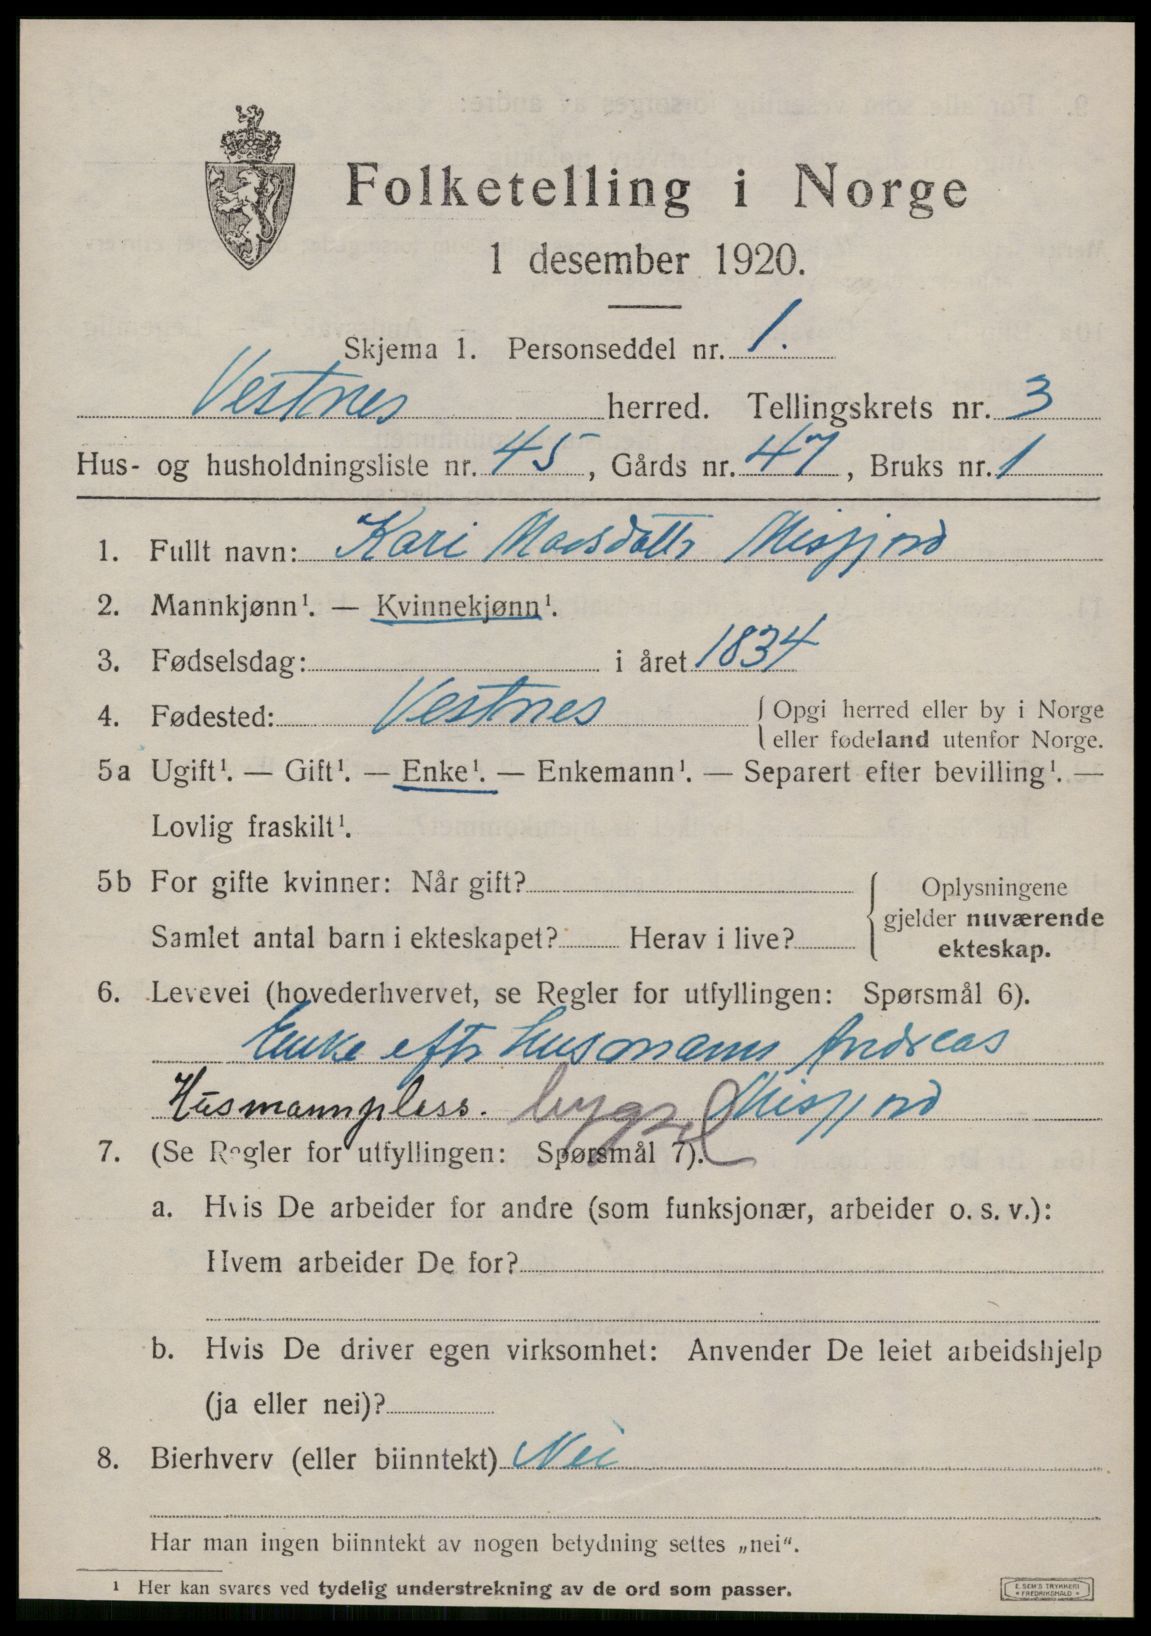 Folketelling i Norge
1 desember 1920.
Skjema 1. Personseddel nr. 1.
Vestnes herred. Tellingskrets nr. 3
Hus- og husholdningsliste nr. 45, Gårds nr. 47, Bruks nr. 1
1. Fullt navn: Kari Madsdattr Misfjord
2. Mannkjønn¹. — Kvinnekjønn¹.
3. Fødselsdag: i året 1834
4. Fødested: Vestnes { Opgi herred eller by i Norge
eller fødeland utenfor Norge.
5a Ugift¹. — Gift¹. — Enke¹. — Enkemann¹. — Separert efter bevilling¹. —
Lovlig fraskilt¹.
5b For gifte kvinner: Når gift? { Oplysningene
gjelder nuværende
Samlet antal barn i ekteskapet? Herav i live? ekteskap.
6. Levevei (hovederhvervet, se Regler for utfyllingen: Spørsmål 6).
Enke eftr Husmann Andreas
Husmannpless. bygsel Misfjord
7. (Se Regler for utfyllingen: Spørsmål 7).
a. Hvis De arbeider for andre (som funksjonær, arbeider o. s. v.):
Hvem arbeider De for?
b. Hvis De driver egen virksomhet: Anvender De leiet arbeidshjelp
(ja eller nei)?
8. Bierhverv (eller biinntekt) Nei
Har man ingen biinntekt av nogen betydning settes „nei“.
¹ Her kan svares ved tydelig understrekning av de ord som passer.
E. SEM'S TRYKKERI
• FREDRIKSHALD •